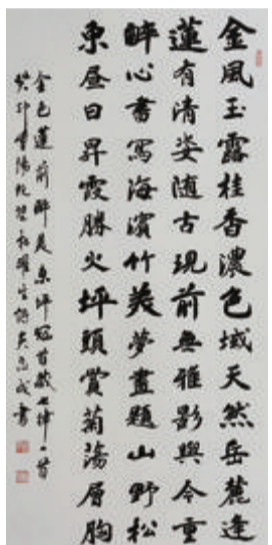 金風玉露桂香濃色域天然岳麓逢
蓮有清姿隨古現前無雅影與今重
醉心書寫海濱竹美夢畫題山野松
東昼日昇霞勝火坪頭賞菊蕩層胸
金色蓮前醉美東坪冠首藏七律一首
癸卯重陽
書